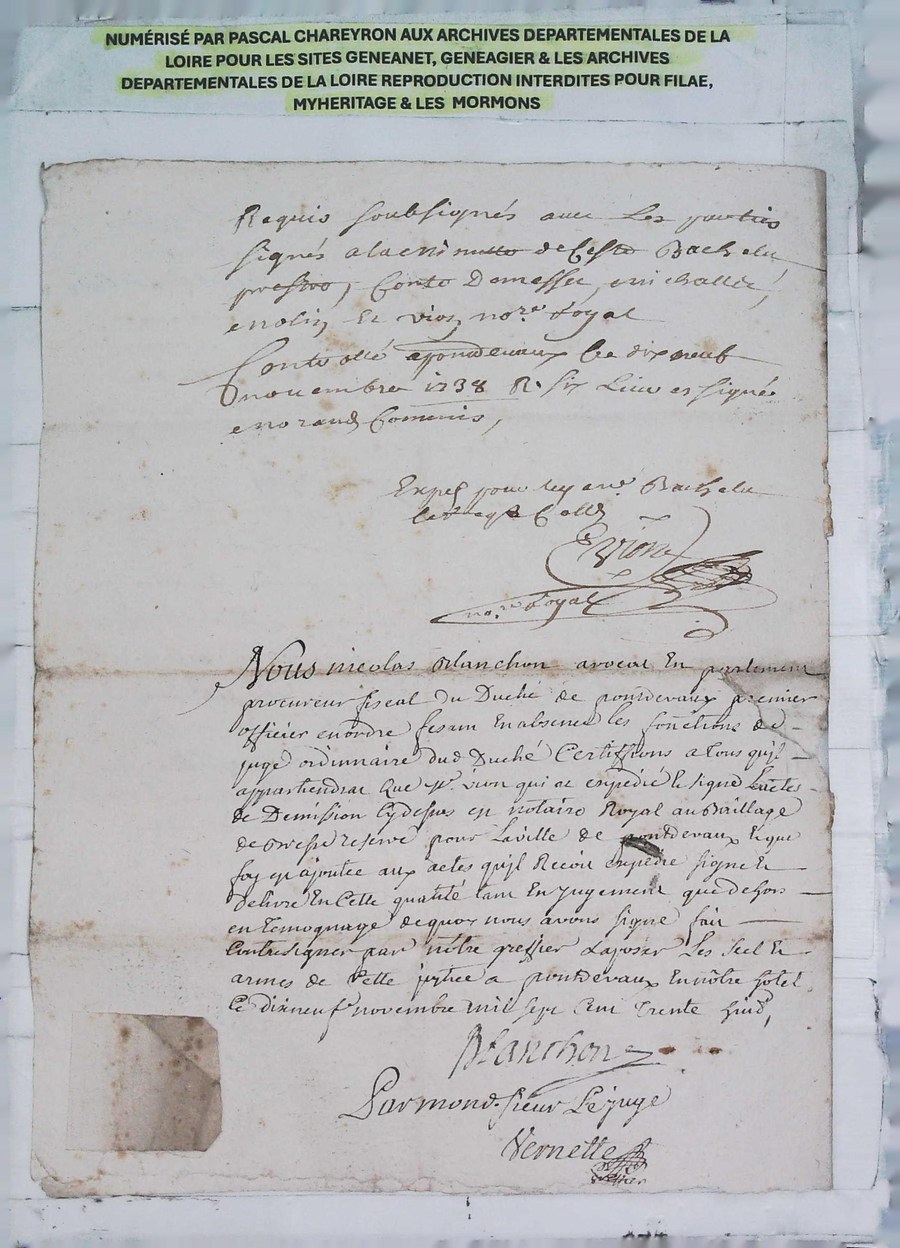 NUMÉRISÉ PAR PASCAL CHAREYRON AUX ARCHIVES DEPARTEMENTALES DE LA
LOIRE POUR LES SITES GENEANET, GENEAGIER & LES ARCHIVES
DEPARTEMENTALES DE LA LOIRE REPRODUCTION INTERDITES POUR FILAE,
MYHERITAGE & LES MORMONS
Requis soubsignés avec les parties
signés a la minutte de Ceste Bachelu
prestre, Conte Demesse,
et vion nore Royal
Controllé a pondevaux le dix neuf
novembre 1738 R. six Livres signé
Commis,
Expé pour Bachelu
Vion
nore Royal
Nous nicolas Blanchon avocat En parlement
procureur fiscal du Duché de pontdevaux premier
officier en ordre fesant En absence les fonctions de
juge ordinnaire dud Duché Certiffions a tous qu'il
appartiendrat Que Mr. vion qui at expédié et signé Lacte
de Demission Cydessus est notaire Royal au Baillage
de reservé pour La ville de pontdevaux Et que
foy est ajoutée aux actes qu'jl Recoit expedie signe Et
Delivre En Cette qualité tant En Jugement que dehors
en Temognage de quoy nous avons signé fait
Contresigner par nôtre greffier Et aposer Les Scel Et
armes de Cette justice a pontdevaux En nôtre hotel
Ce dixneuf novembre mil sept Cent trente huict,
Blanchon
Par mond. sieur Le juge
Vernette
greffier